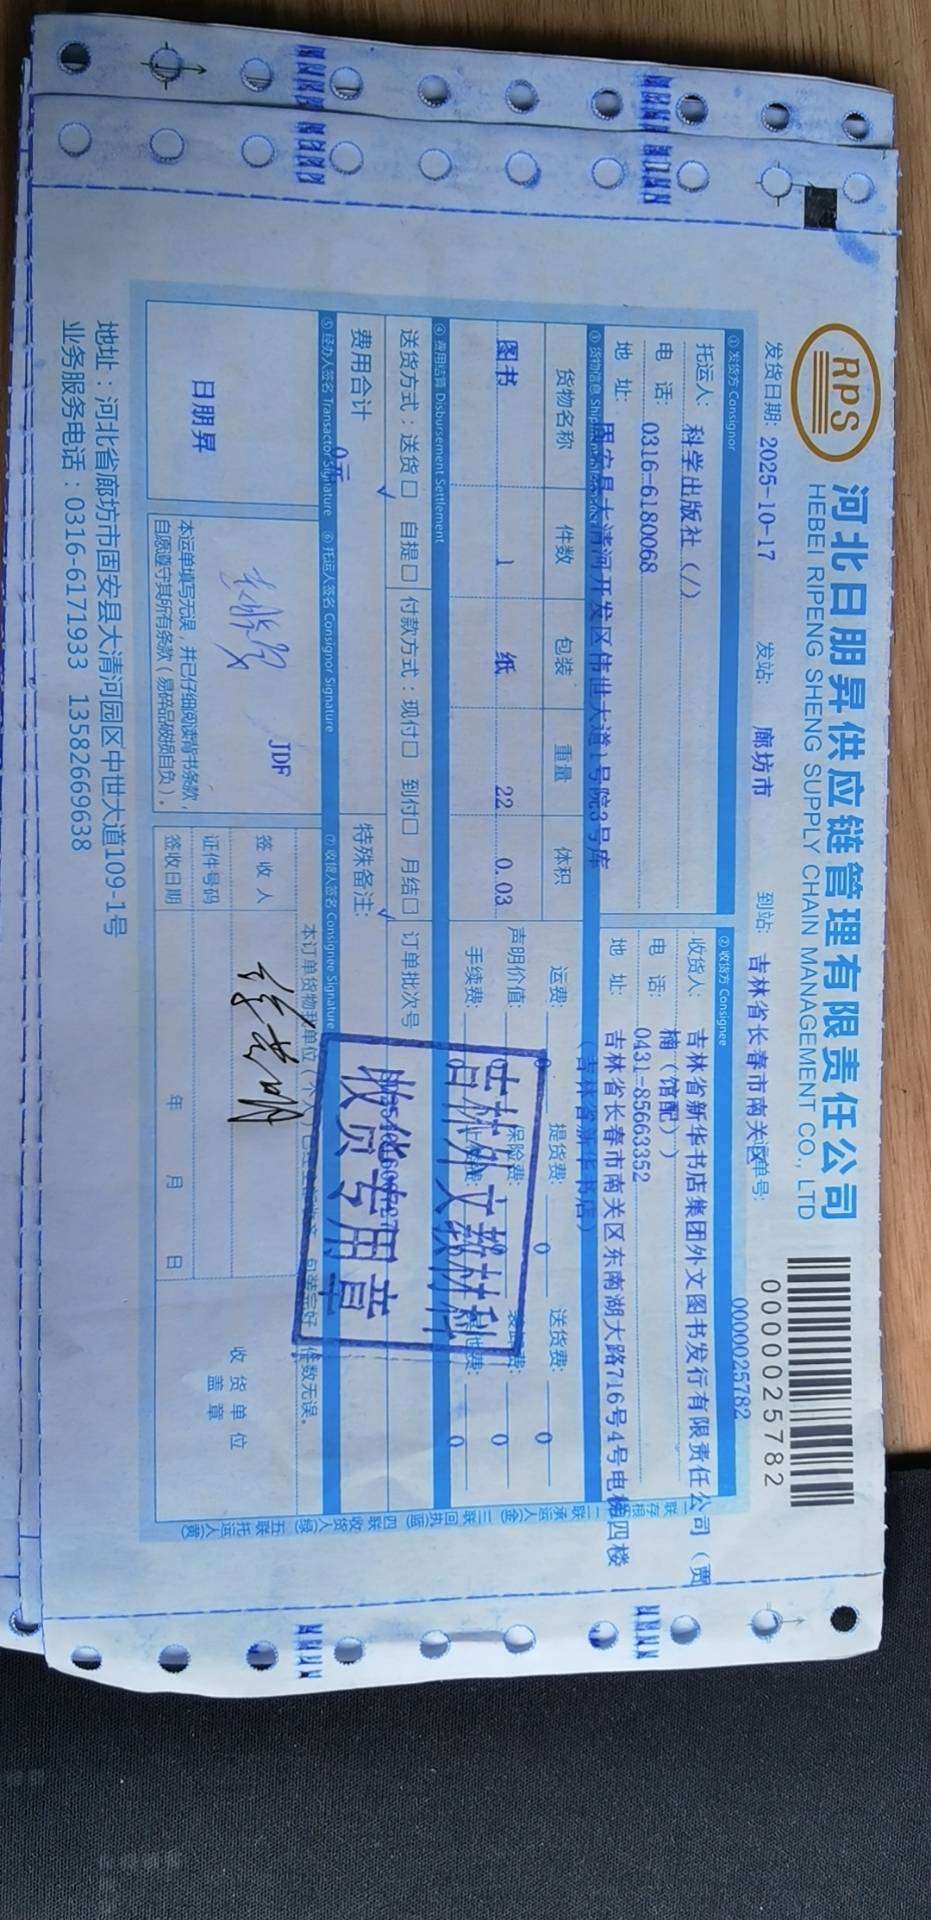 RPS
河北日朋昇供应链管理有限责任公司
HEBEI RIPENG SHENG SUPPLY CHAIN MANAGEMENT CO., LTD
0000025782
发货日期: 2025-10-17 发站: 廊坊市 到站: 吉林省长春市南关区 运单号: 0000025782
① 发货方 Consignor
托运人: 科学出版社 (/)
电 话: 0316-6180068
地 址: 固安县大清河开发区伟世大道1号院3号库
② 收货方 Consignee
收货人: 吉林省新华书店集团外文图书发行有限责任公司（贾
楠（馆配））
电 话: 0431-85663352
地 址: 吉林省长春市南关区东南湖大路716号4号电梯四楼
（吉林省新华书店）
③ 货物信息
货物名称 件数 包装 重量 体积
图书 1 纸 22 0.03
运费: 0 提货费: 0 送货费: 0
声明价值: 0 保险费: 0
手续费: 0
④ 费用结算 Disbursement Settlement
送货方式：送货☐ 自提☐ 付款方式：现付☐ 到付☐ 月结☐ 订单批次号
✓ ✓
费用合计 0元 特殊备注:
⑤ 经办人签名 Transactor Signature ⑥ 托运人签名 Consignor Signature ⑦ 收货人签名 Consignee Signature
日朋昇
JDF
本运单填写无误，并已仔细阅读背书条款，
自愿遵守其所有条款（易碎品破损自负）。
件数无误。
签 收 人
证件号码
签收日期 年 月 日
收 货 单 位
盖 章
吉林外文教材科
收货专用章
一联存根
二联承运人(金)
三联回执(蓝)
四联收货人(绿)
五联托运人(黄)
地址：河北省廊坊市固安县大清河园区中世大道109-1号
业务服务电话：0316-6171933 13582669638